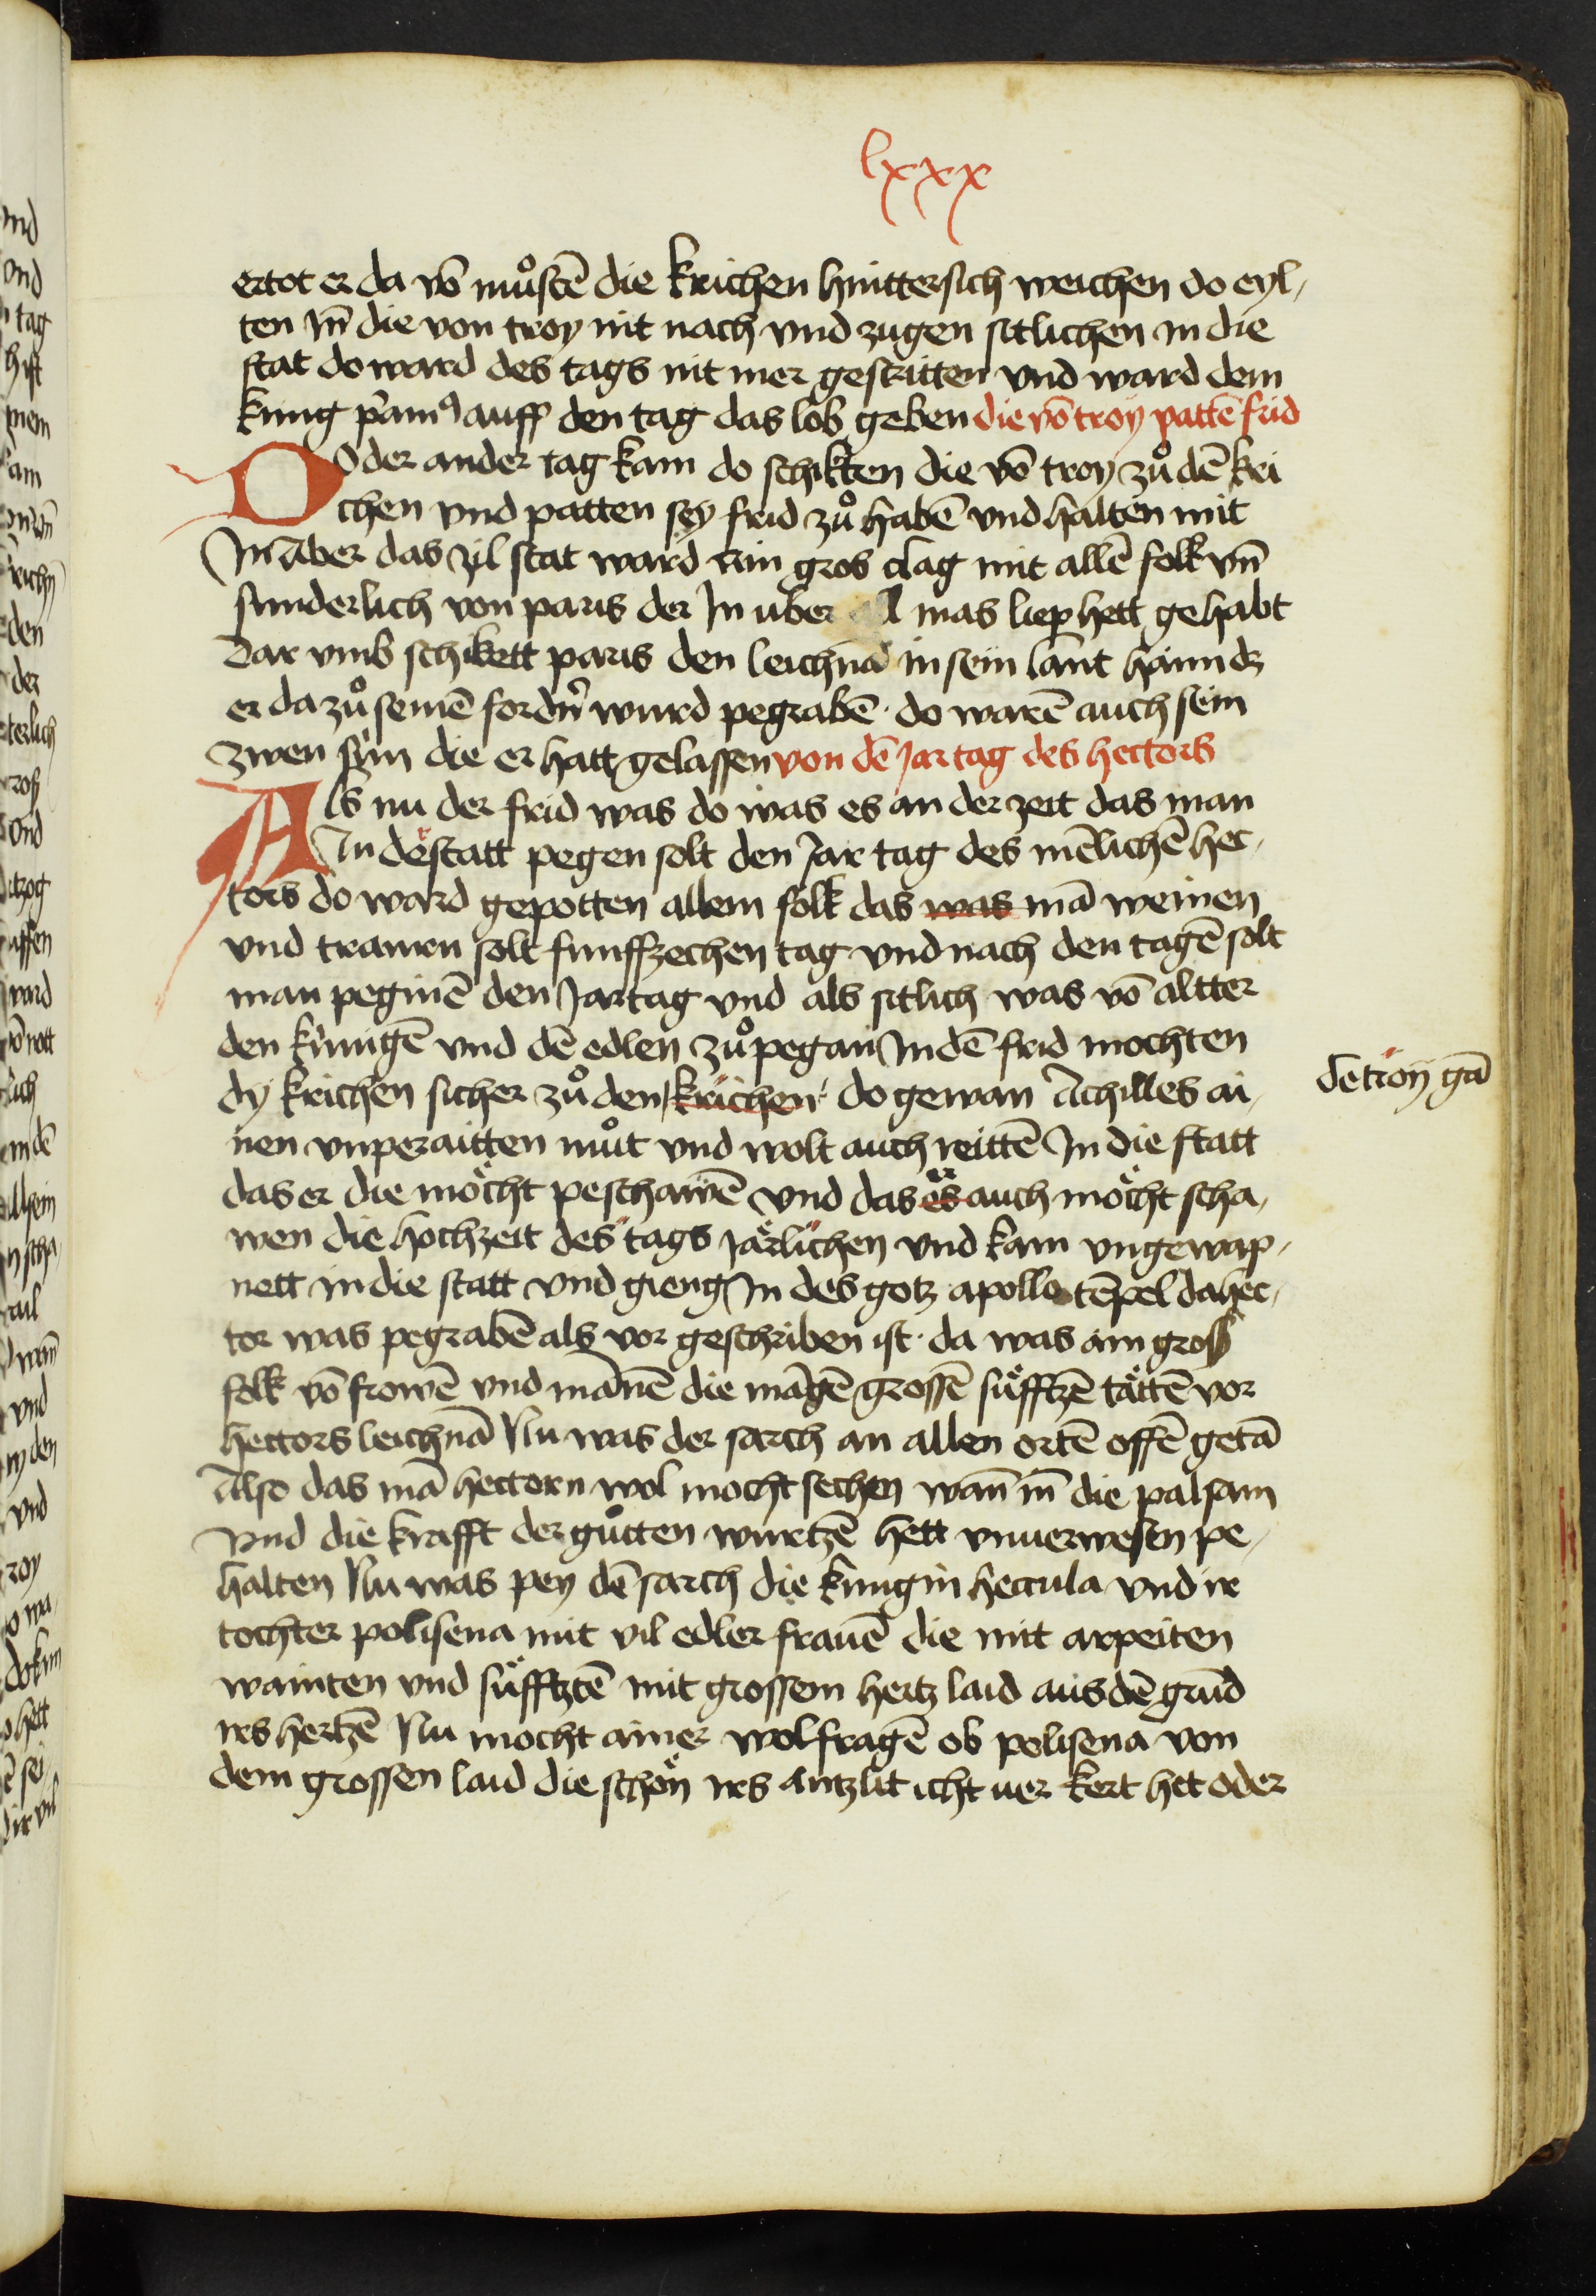 lxxx
ertot er da vō muͦstē die krichen hinttersich weichen do eyl-
ten Im̄ die von troy nit nach vnd zugen sitlichen in die
stat do ward des tags nit mer gestritten vnd ward dem
kung p̓amꝰ auff den tag das lob geben die vō troy pattē frid
Do der ander tag kam do schikten die vō troy zuͦ dē kri
chen vnd patten sey frid zuͦ habē vnd halten mit
In Aber das yl stat ward ain gros clag mit allē folk vn̄
sunderlich von paris der In uber all mas liep hett gehabt
Dar vmb schikett paris den leichnā in sein lant haim dz
er da zuͦ seinē fordn̓ wurd pegrabē · do warē auch sein
zwen sün die er hatt gelassen von dē Jartag des hectors
Als nu der frid was do was es an der zeit das man
In de statt pegen solt den Jar tag des mēlichē hec-
tors do ward gepotten allem folk das was mā weinen
vnd trauren solt funffzechen tag vnd nach den tagē solt
man peginē den Jartag vnd als sitlich was vō altter
den künigē vnd dē edlen zuͦ pegan In dē frid mochten
dy krichen sicher zuͦ den krichen do gewan Achilles ai-
de troy gā
nen vnperaitten muͦt vnd wolt auch reittē In die statt
das er die möcht peschawē vnd das es er auch möcht scha-
wen die hochzeit des tags järlichen vnd kam vngewap-
nett in die statt vnd gieng In des gotz apollo tēpel da hec-
tor was pegrabē als vor geschriben ist · da was ain gross
folk vō frowē vnd mānē die māgē grossē süfftzē tättē vor
hectors leichnā Nu was der sarch an allen ortē offē getā
Also das mā hectorn wol mocht sechen wan̄ in̄ die palsam
Vnd die krafft der guͦtten wurtzē hett vnuerwesen pe-
halten Nu was pey dē sarch die kungin heccula vnd ir
tochter polisena mit vil edler frauē die mit arpeiten
wainten vnd süfftztē mit grossem hertz laid aus dē grūd
irs hertzē Nu mocht ainer wol fragē ob polisena von
dem grossen laid die schön irs antzlit icht uer kert het oder